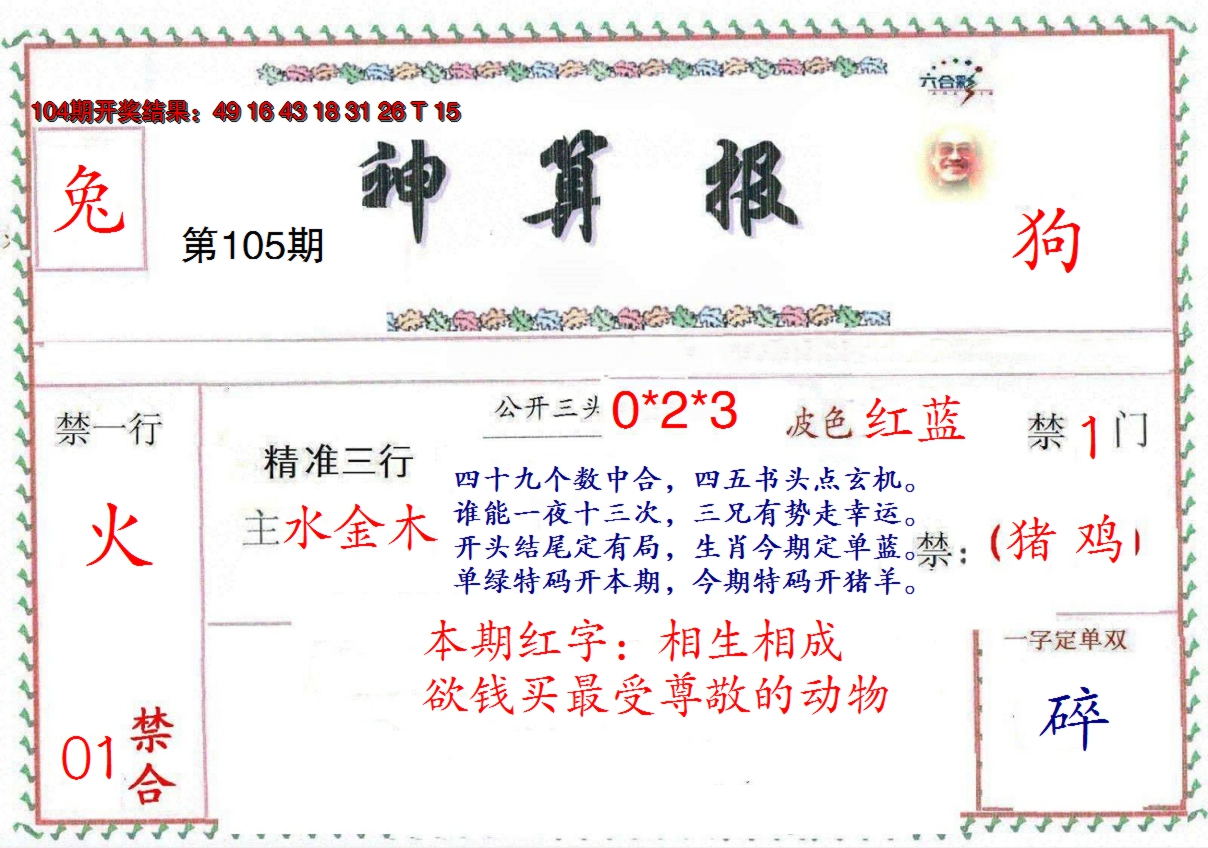 六合彩
104期开奖结果：49 16 43 18 31 26 T 15
神算报
兔
第105期
狗
禁一行
火
01
禁合
精准三行
主水金木
公开三头 0*2*3
波色 红蓝
禁1门
四十九个数中合，四五书头点玄机。
谁能一夜十三次，三兄有势走幸运。
开头结尾定有局，生肖今期定单蓝。
单绿特码开本期，今期特码开猪羊。
禁：(猪 鸡)
本期红字：相生相成
欲钱买最受尊敬的动物
一字定单双
碎